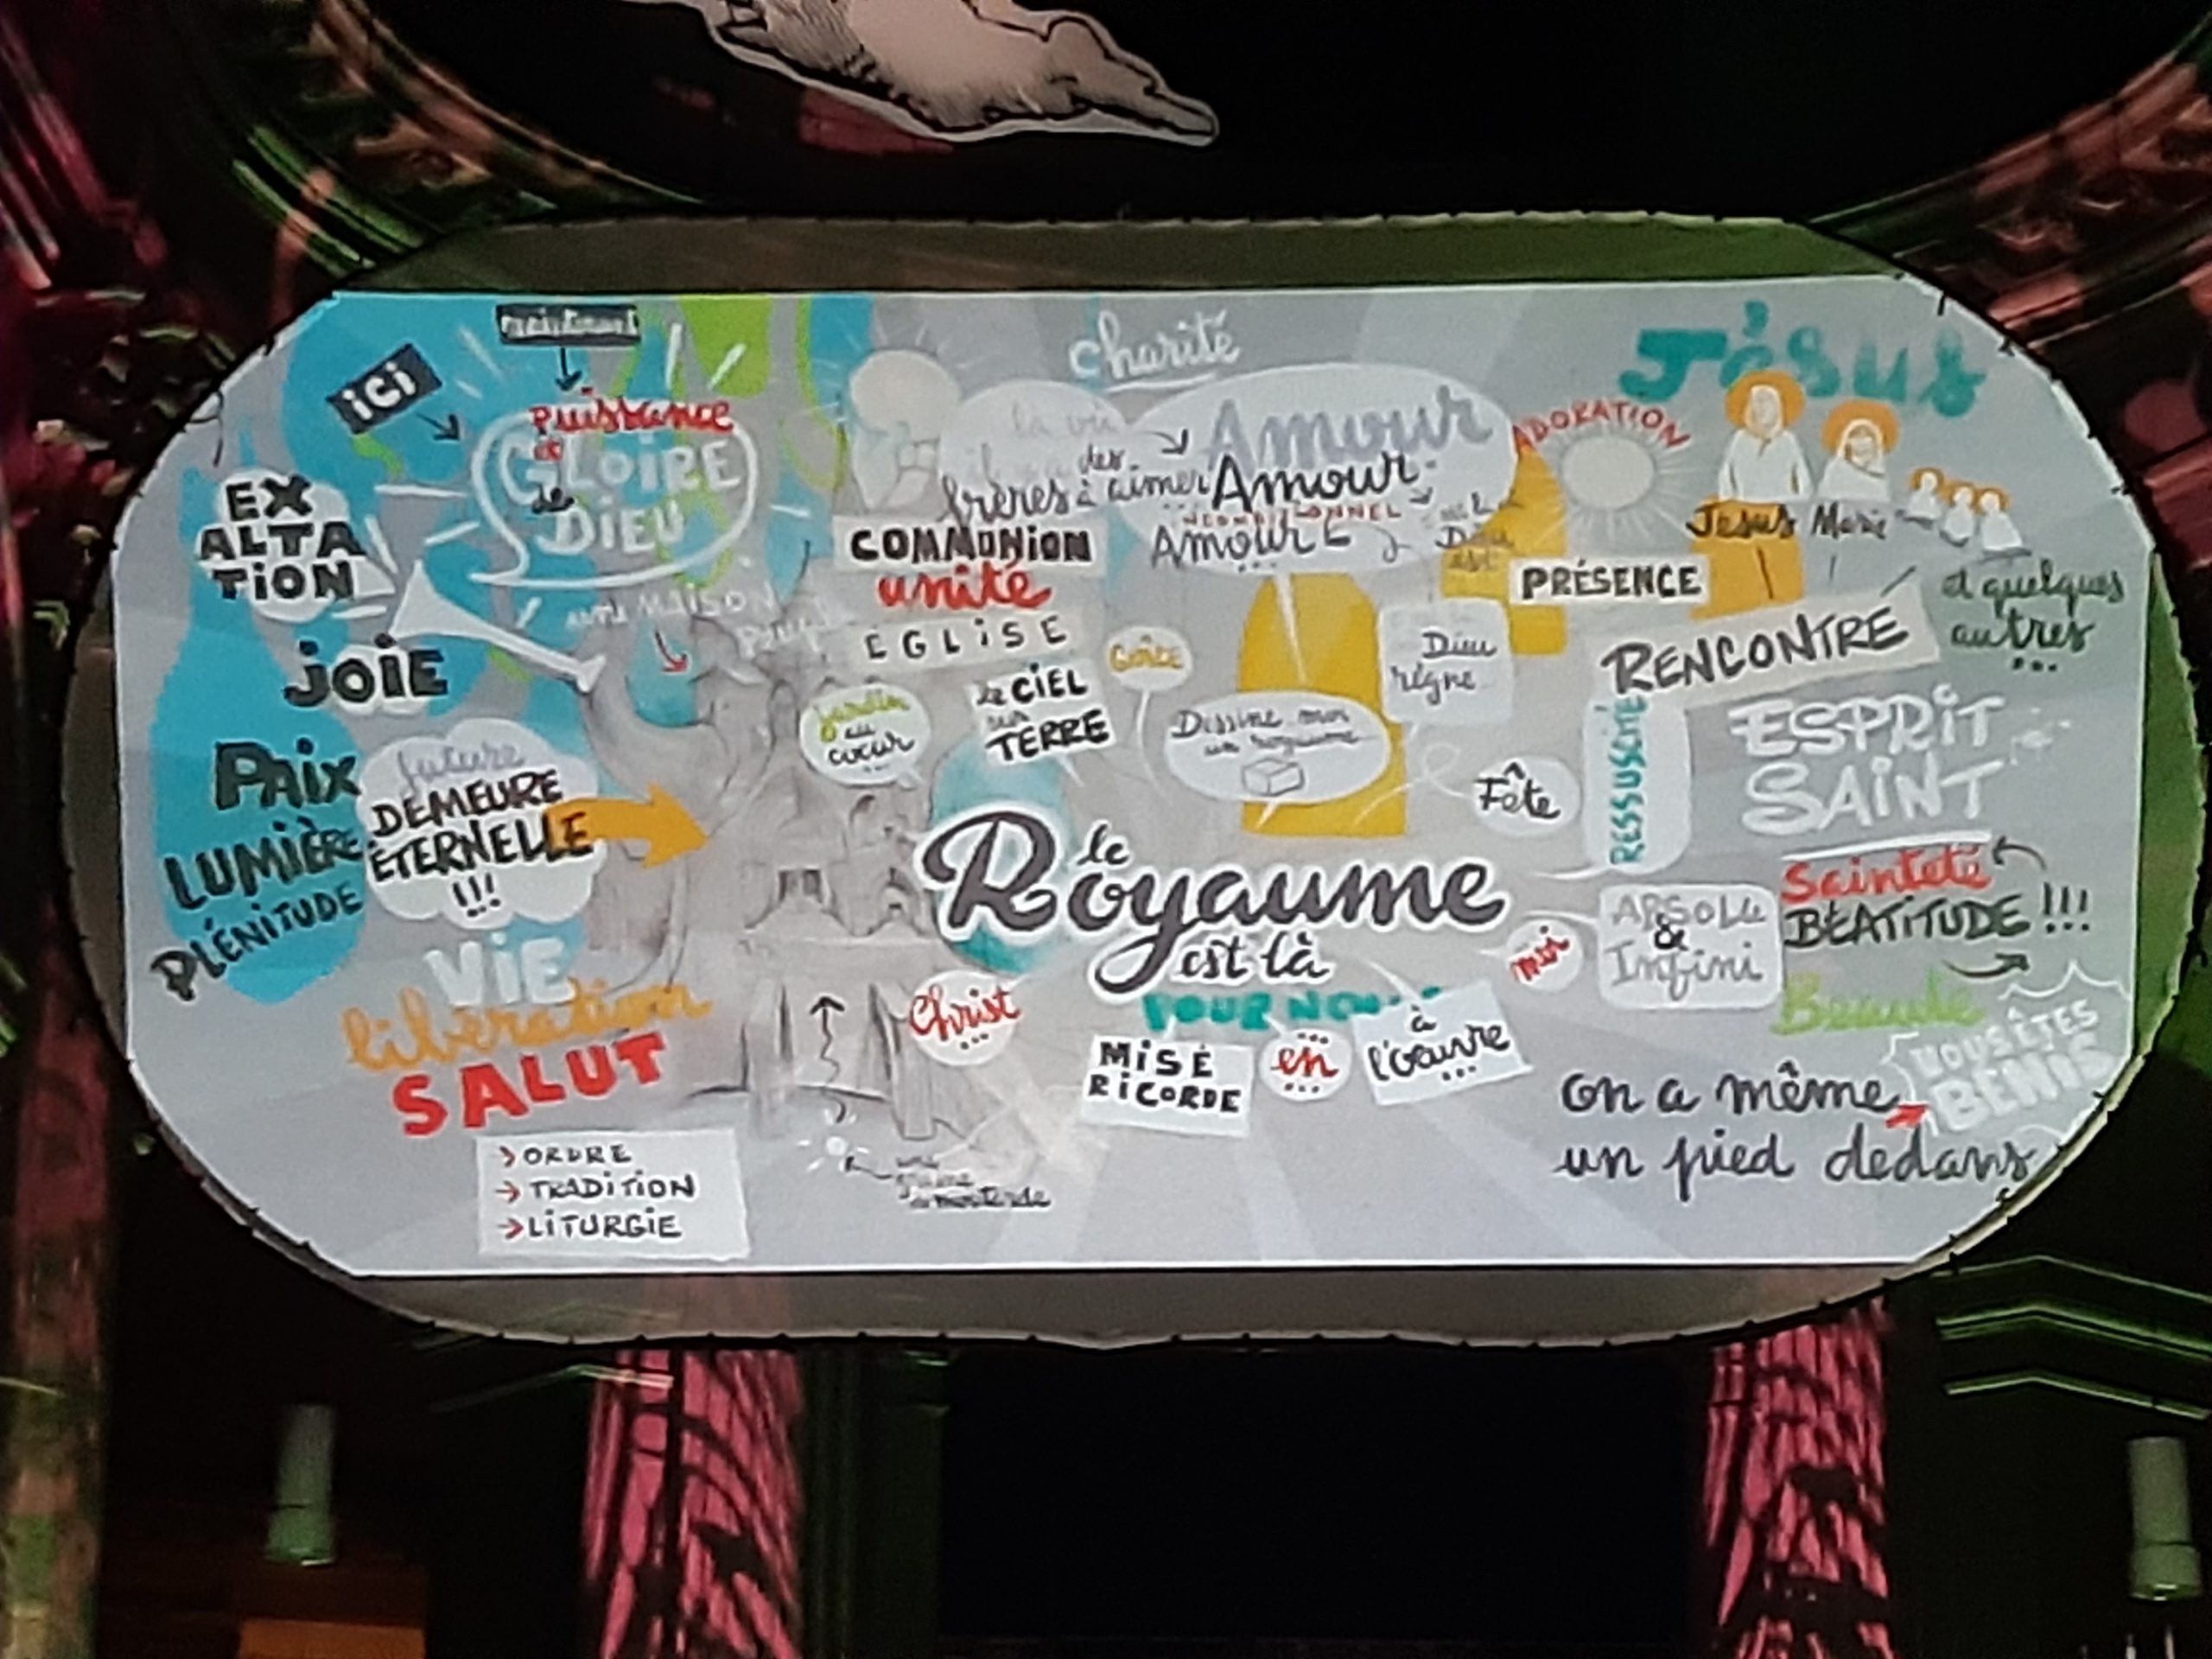 ici
puissance
GLOIRE
de
DIEU
EX
ALTA
TiON
JOIE
PAIX
LUMIÈRE
PLÉNITUDE
future
DEMEURE
ÉTERNELLE
!!!
ViE
libération
SALUT
> ORDRE
→ TRADITION
→ LITURGIE
MAISON
peuple
charité
la vie
des
frères à aimer
Amour
Amour
Amour
COMMUNiON
unité
EGLiSE
jardin
au
coeur
...
Le CiEL
sur
TERRE
Dieu
règne
Dessine moi
un royaume
Fête
le
Royaume
est là
POUR NOUS
Christ
...
MiSÉ
RiCORDE
...
en
...
à
l'oeuvre
...
moi
graine
de moutarde
Jésus
ADORATION
Jésus Marie
et quelques
autres
...
PRÉSENCE
RENCONTRE
RESSUSCITÉ
ESPRiT
SAiNT
Sainteté
BÉATITUDE !!!
ABSOLU
&
Infini
Beauté
VOUS ÊTES
BÉNIS
on a même
un pied dedans